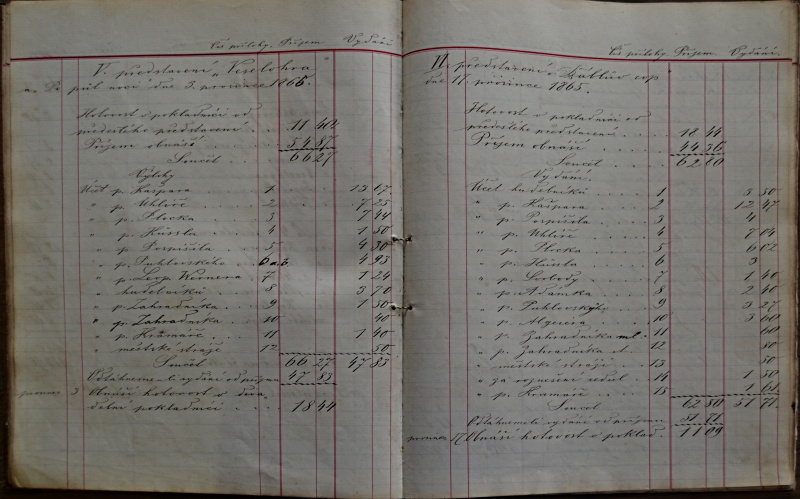 Čís přílohy. Příjem Vydání
V. představení „Veselohra
půl noci dne 3. prosince 1865.
Hotovost v pokladnici od
předešlého představení . . . 11 40
Příjem obnáší . . . 54 87
Součet . . . 66 27
Výlohy
Účet p. Kašpara . . . 1 13 07
„ p. Uhlíře . . . 2 7 25
„ p. Plocka . . . 3 7 44
„ p. Hůssla . . . 4 1 50
„ p. Pospíšila . . . 5 4 30
„ p. Puhlovského . . 6 a b 4 93
„ p. Leop Wernera . . 7 1 24
„ hudebníků . . . 8 3 70
„ p. Zahradníka . . . 9 1 50
„ p. Zahradníka . . . 10 40
„ p. Kramáře . . . 11 1 40
„ městské stráže . . 12 50
Součet 66 27 47 83
Odtáhneme-li vydání od příjmu 47 83
3 Obnáší hotovost v
pokladnici . . . 18 44
Čís přílohy Příjem Vydání
VI. představení
dne 17. prosince 1865.
Hotovost v pokladnici od
předešlého představení . . . 18 44
Příjem obnáší . . . 44 36
Součet . . . 62 80
Vydání.
Účet hudebníků . . . 1 3 50
„ p. Kašpara . . . 2 12 47
„ p. Pospíšila . . . 3 4
„ p. Uhlíře . . . 4 7 04
„ p. Plocka . . . 5 6 02
„ p. Hůssla . . . 6 3
„ p. Svobody . . . 7 1 40
„ p. Adámka . . . 8 2 40
„ p. Puhlovského . . 9 3 27
„ p. . . . 10 3 60
„ p. Zahradníka ml. . 11 60
„ p. Zahradníka st. 12 80
„ městské stráže . . 13 50
„ za roznesení cedul . . 14 1 50
„ p. Kramáře . . . 15 1 61
Součet 62 80 51 71
Odtáhneme-li vydání od příjmu 51 71
17. Obnáší hotovost v poklad. 11 09